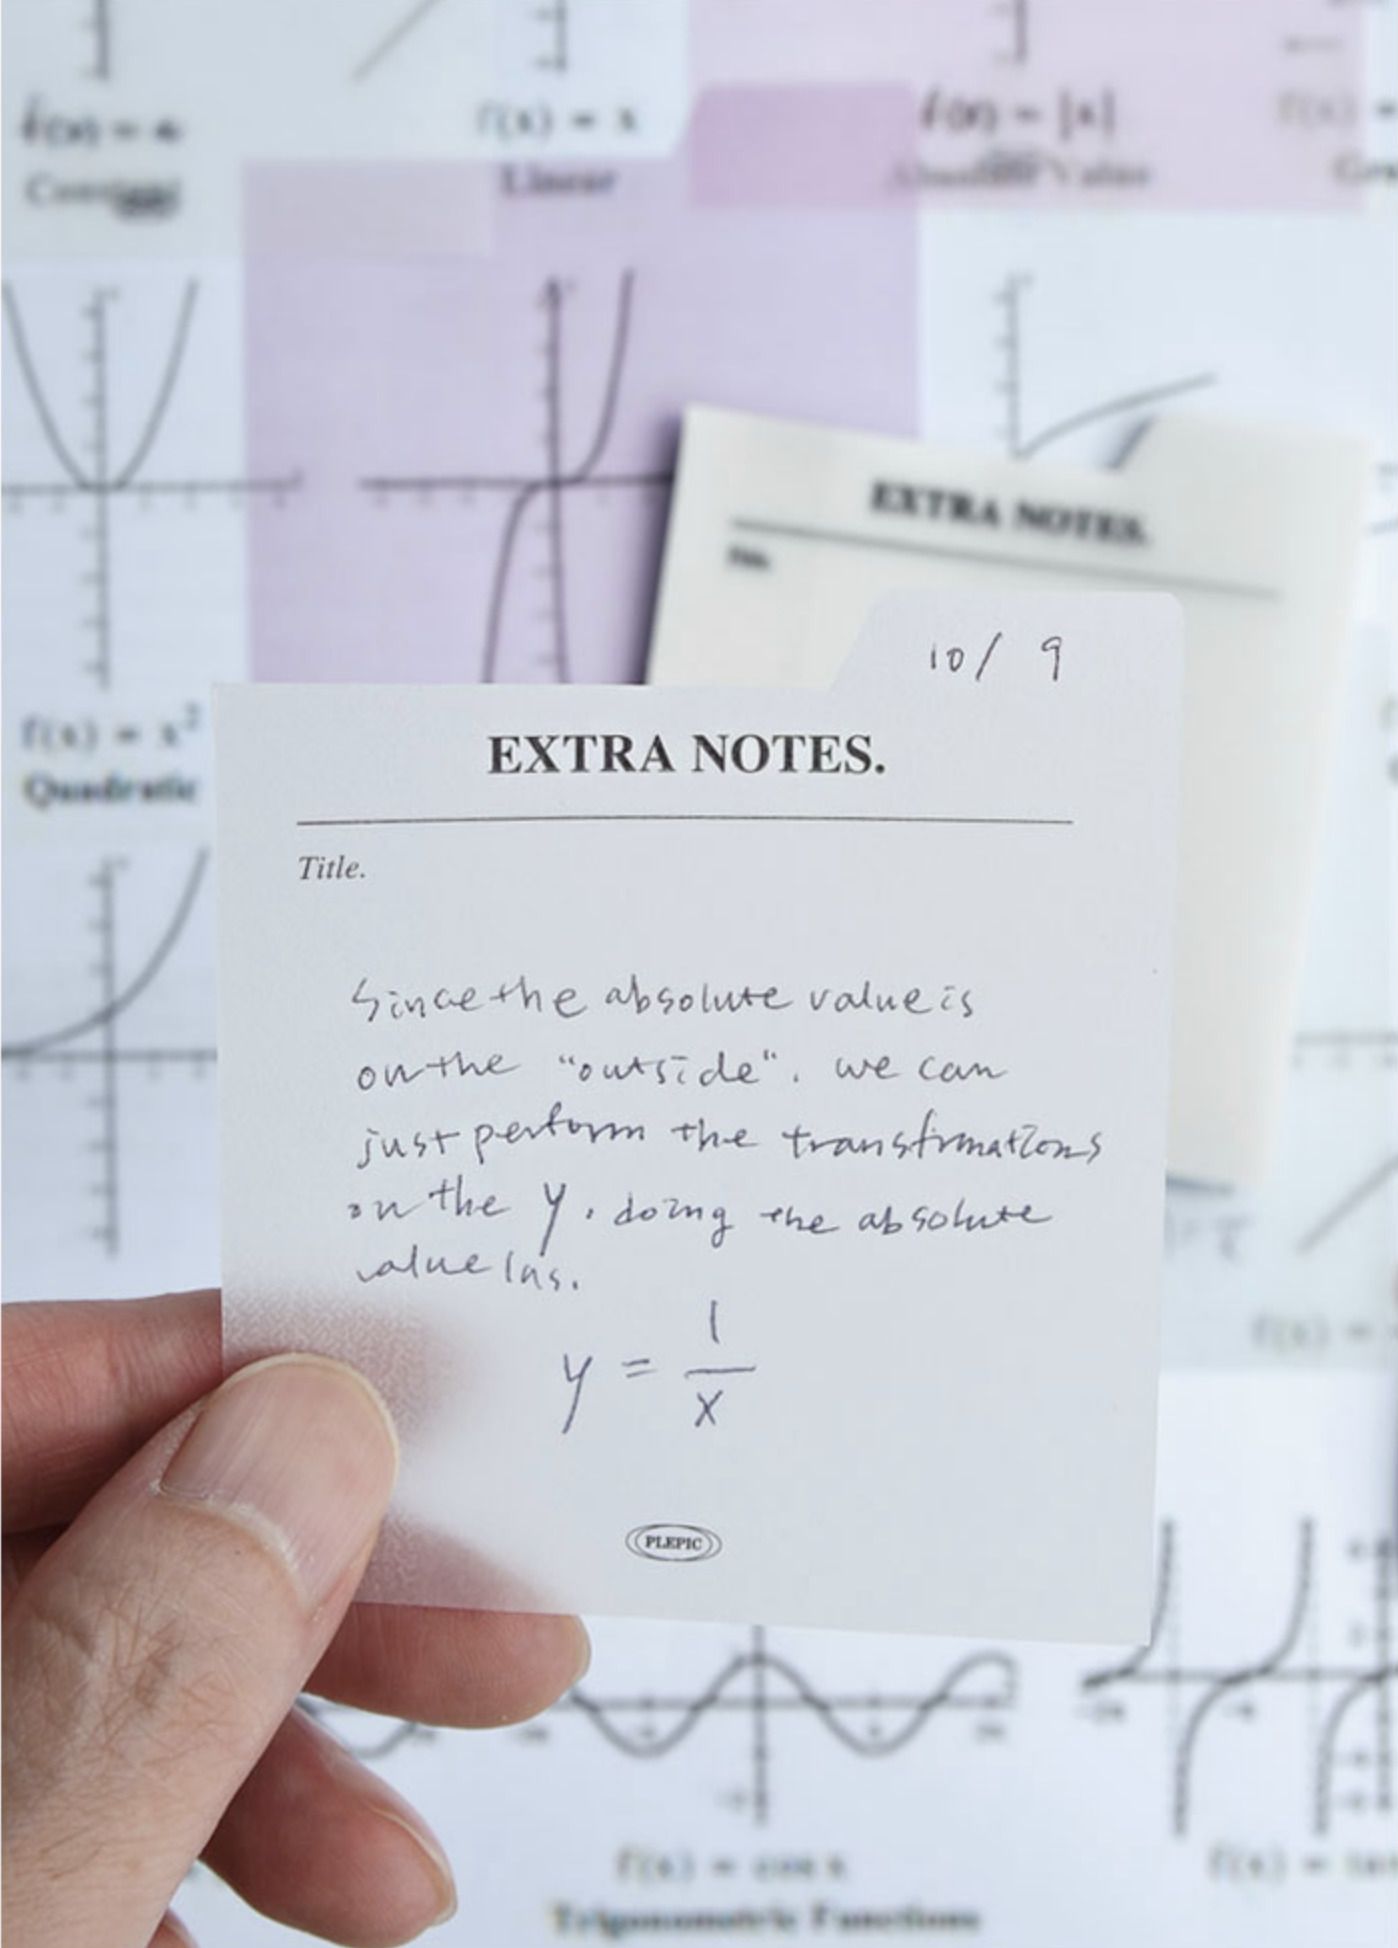 f(x) = x
Linear
f(x) = |x|
Absolute Value
EXTRA NOTES.
Title.
10/ 9
EXTRA NOTES.
Title.
Since the absolute value is
on the "outside". we can
just perform the transfrmations
on the y. doing the absolute
value las.
y = 1
x
PLEPIC
f(x) = x²
Quadratic
f(x) = cos x
Trigonometric Functions